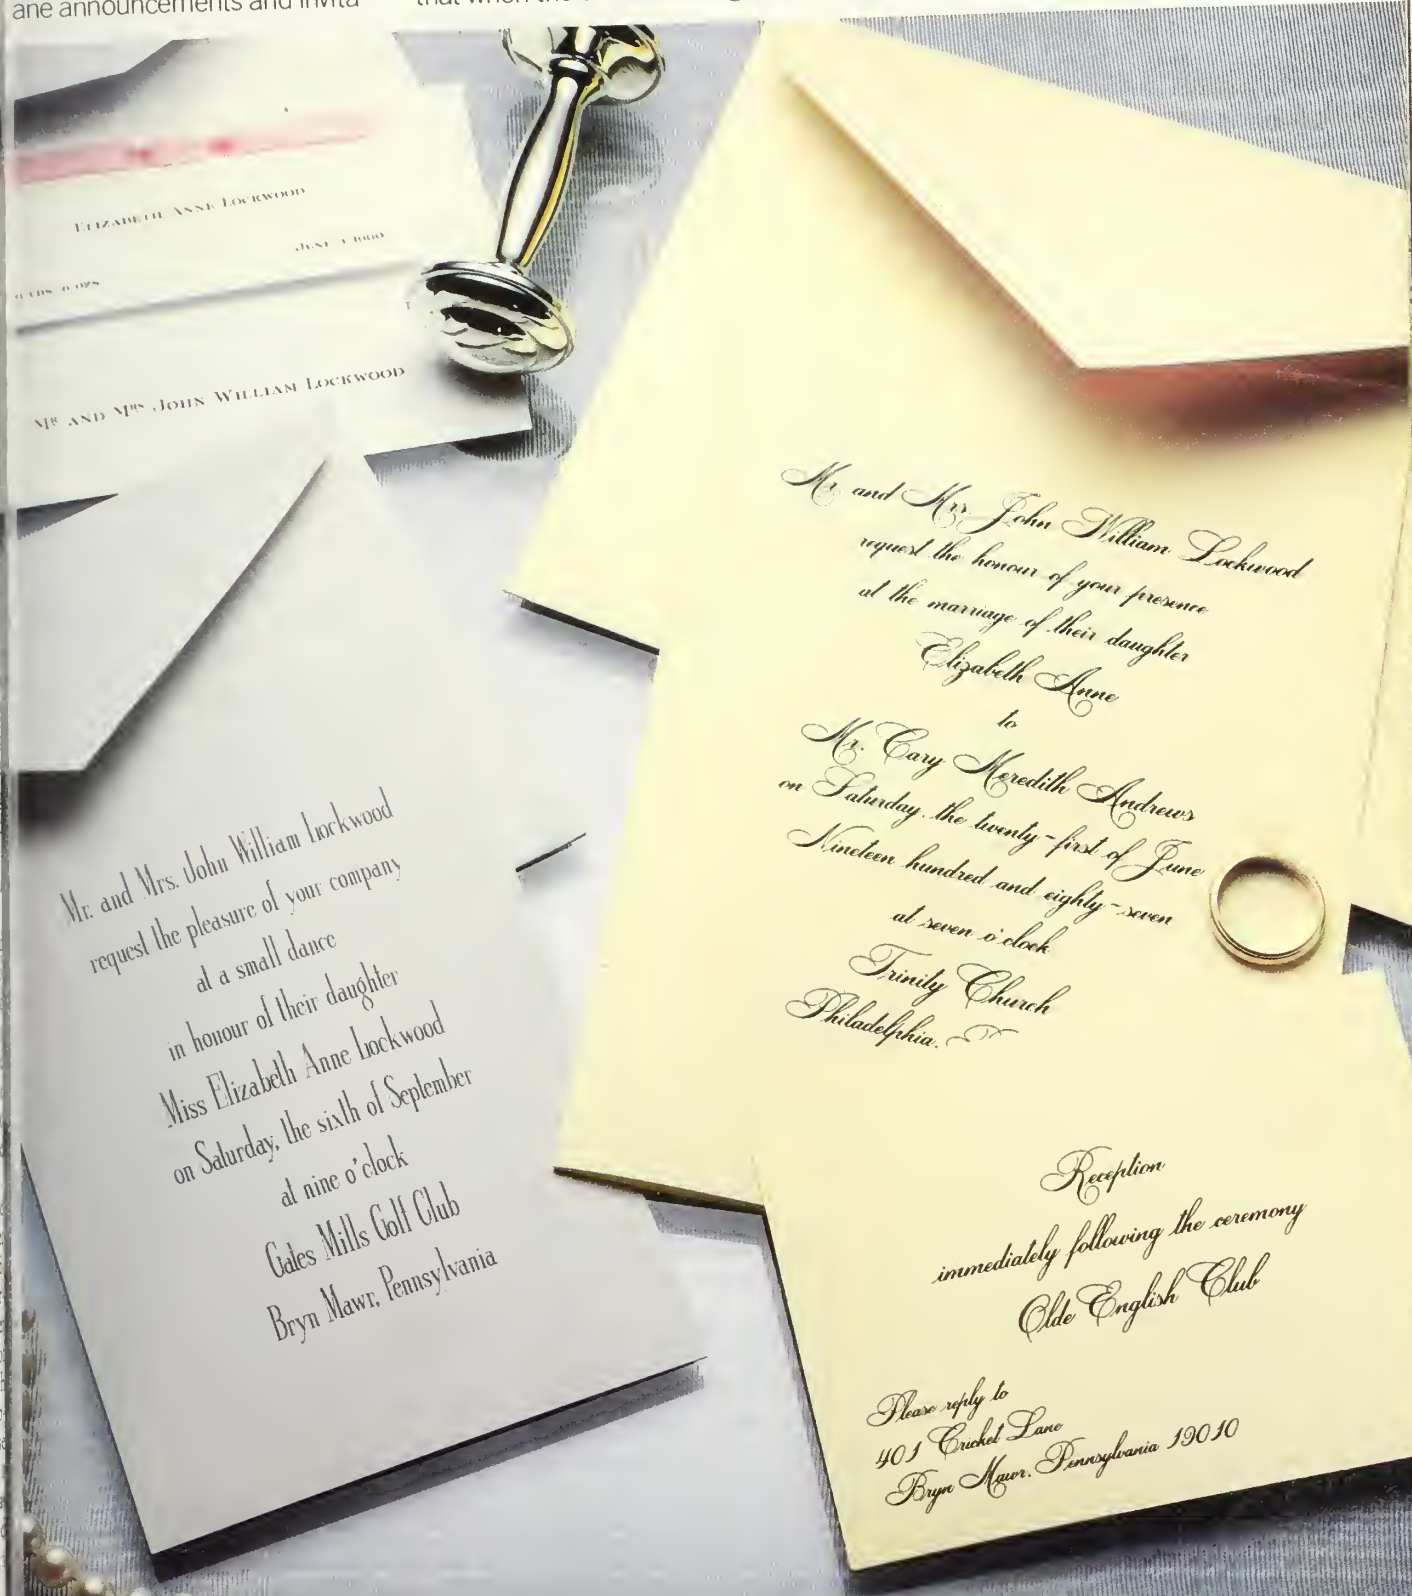 ane announcements and invita
that when the
ELIZABETH ANNE LOCKWOOD
JUNE
MR AND MRS JOHN WILLIAM LOCKWOOD
Mr. and Mrs. John William Lockwood
request the pleasure of your company
at a small dance
in honour of their daughter
Miss Elizabeth Anne Lockwood
on Saturday, the sixth of September
at nine o'clock
Gates Mills Golf Club
Bryn Mawr, Pennsylvania
Mr. and Mrs. John William Lockwood
request the honour of your presence
at the marriage of their daughter
Elizabeth Anne
to
Mr. Cary Meredith Andrews
on Saturday, the twenty-first of June
Nineteen hundred and eighty-seven
at seven o'clock
Trinity Church
Philadelphia.
Reception
immediately following the ceremony
Olde English Club
Please reply to
401 Cricket Lane
Bryn Mawr, Pennsylvania 19010